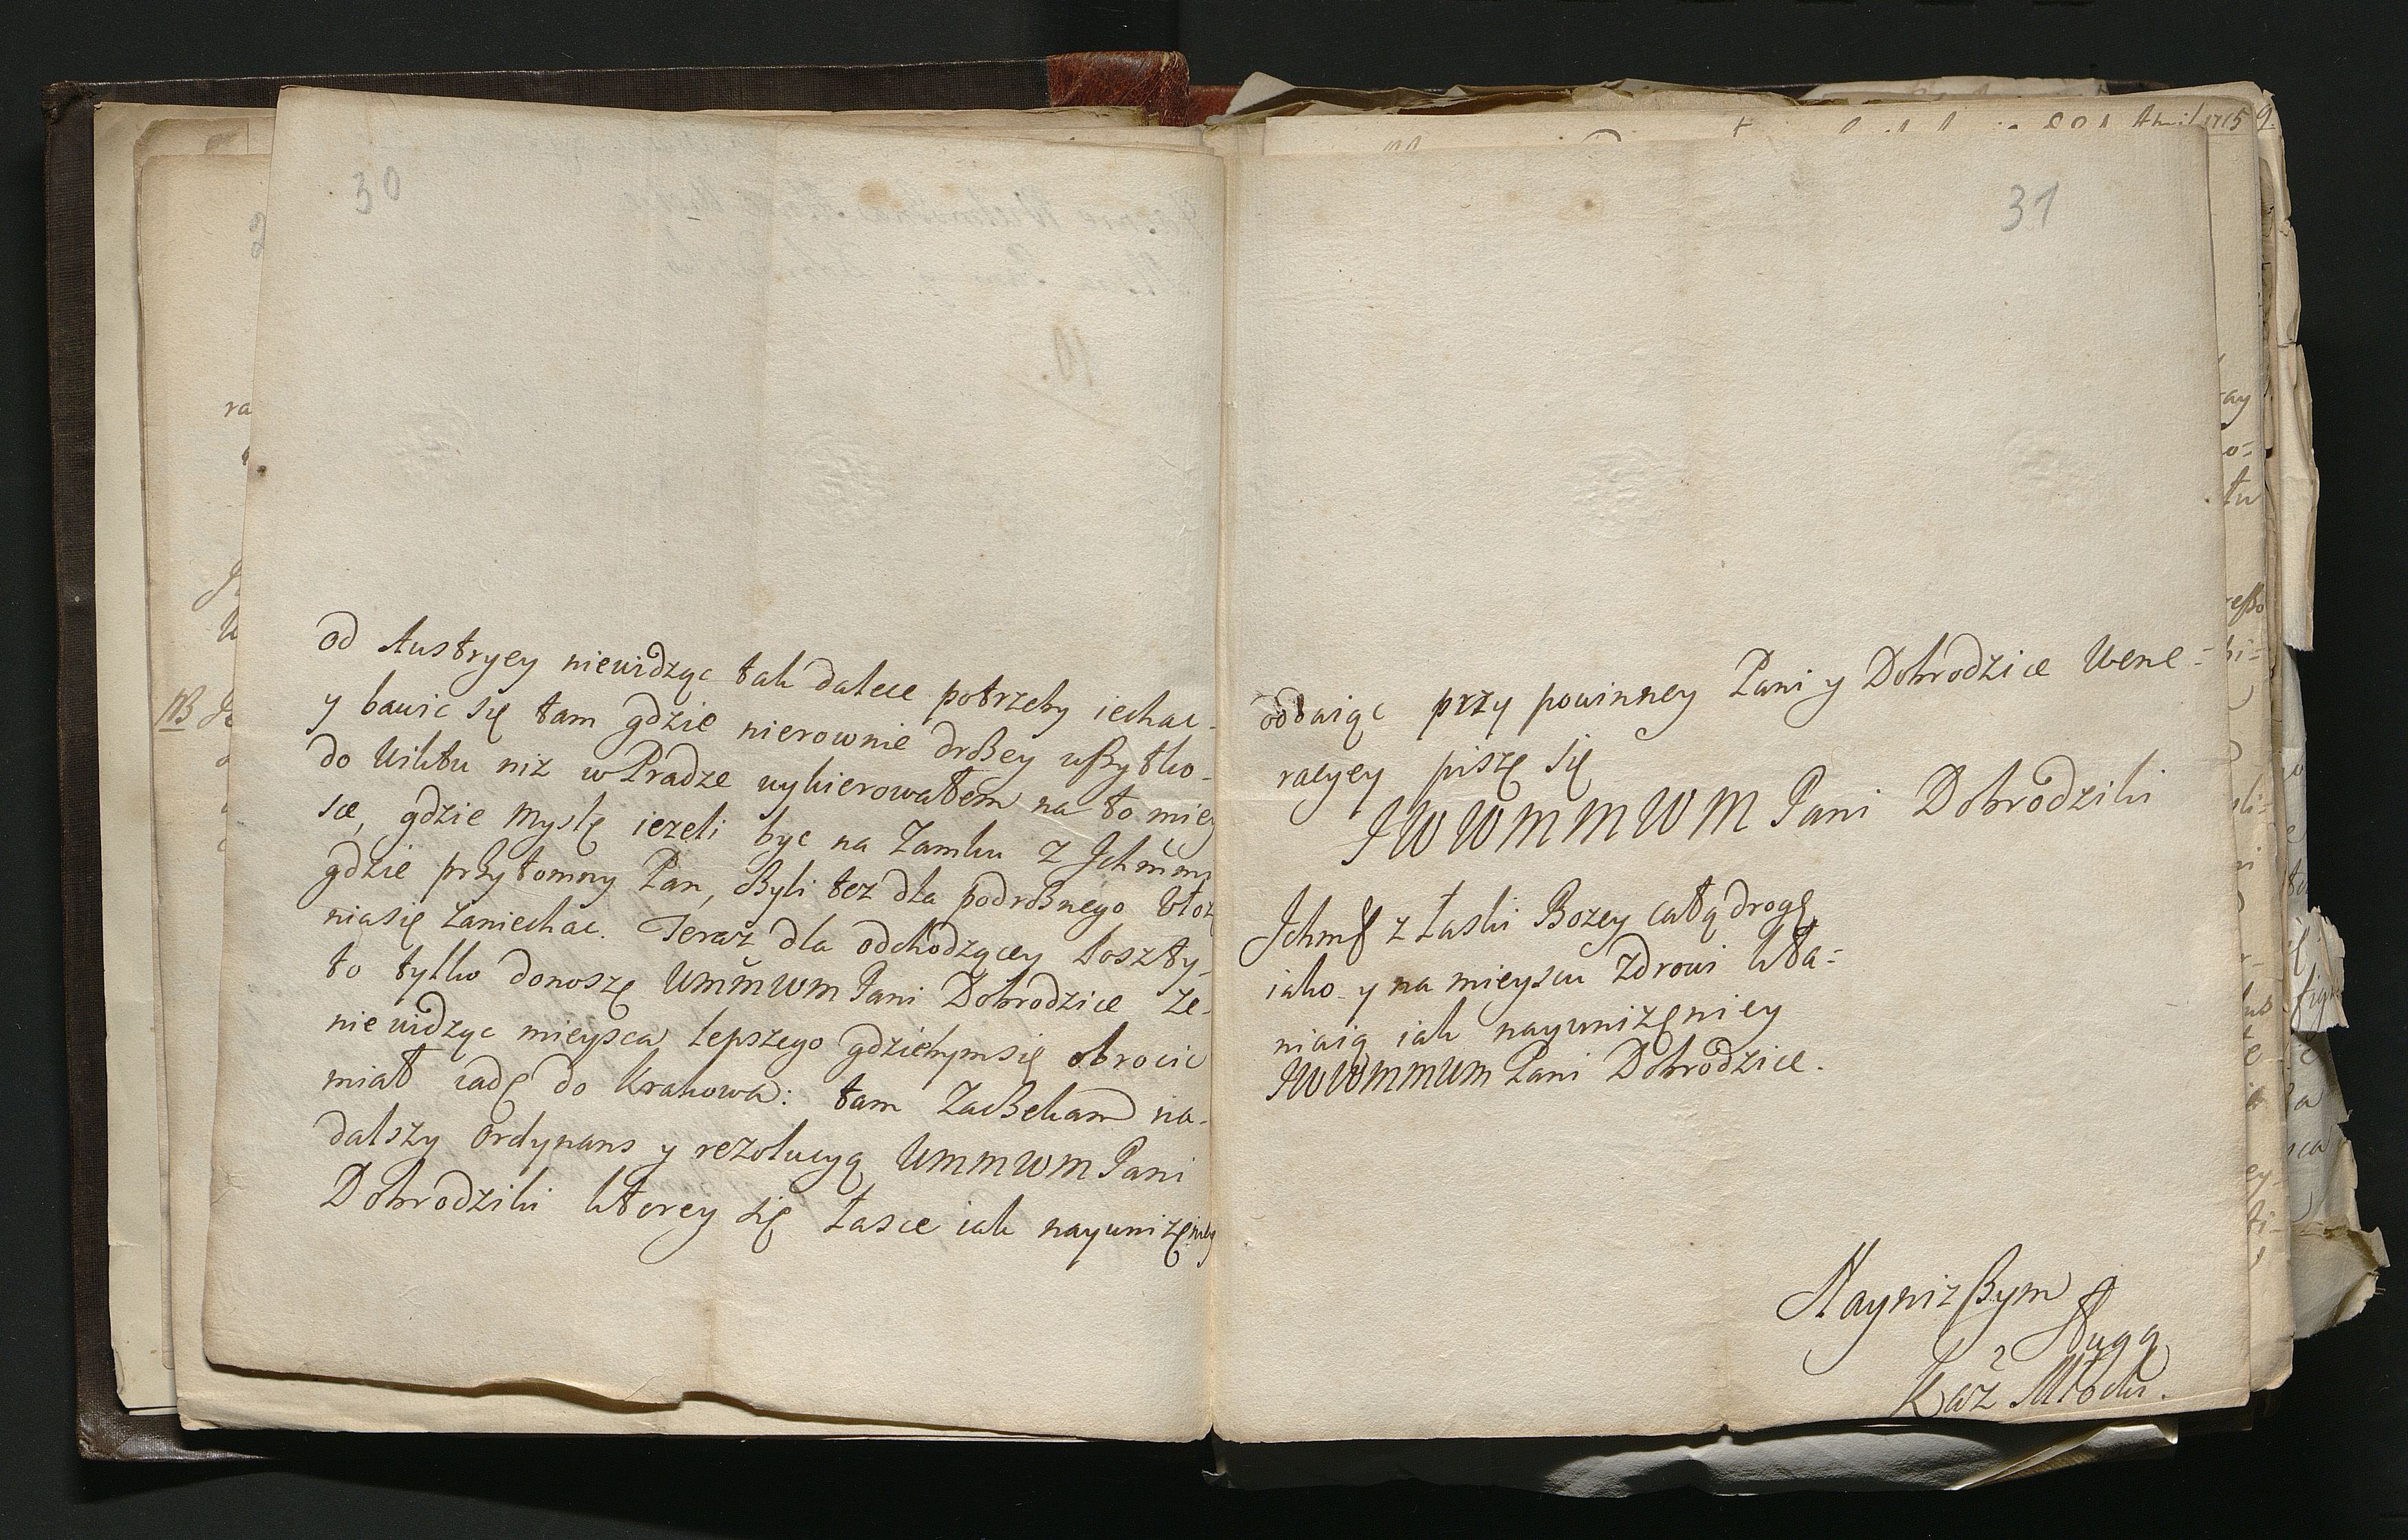 30
od Austryey niewidząc tak dalece potrzeby iechac
y bawic się tam gdzie nierownie droßey wßytko
do wiktu niz w Pradze wykierowałem na to miey
sce, gdzie myslę iezeli byc na Zamku z Ichmm
gdzie przytomny Pan, Byli tez dla podrożnego
nia się zaniechac. Teraz dla odchodzącey Poszty
to tylko donoszę WMMWM Pani Dobrodzice ze
nie widząc mieysca lepszego gdziebym się obrocic
miał iadę do Krakowa: tam zaczekam na
dalszy ordynans y rezolucyą WMMWM Pani
Dobrodziki ktorey się łasce iak nayunizęniey
31
oddaiąc przy powinney Pani y Dobrodzice Wene=
racyey piszę się
JWWMMWM Pani Dobrodziki
Ichmć z łaski Bozey całą drogę
iako y na mieyscu zdrowi kła=
niaią iak nayunizęniey
JWWMMWM Pani Dobrodzice.
Nayniżßym
sługą
Kaz Młocki.